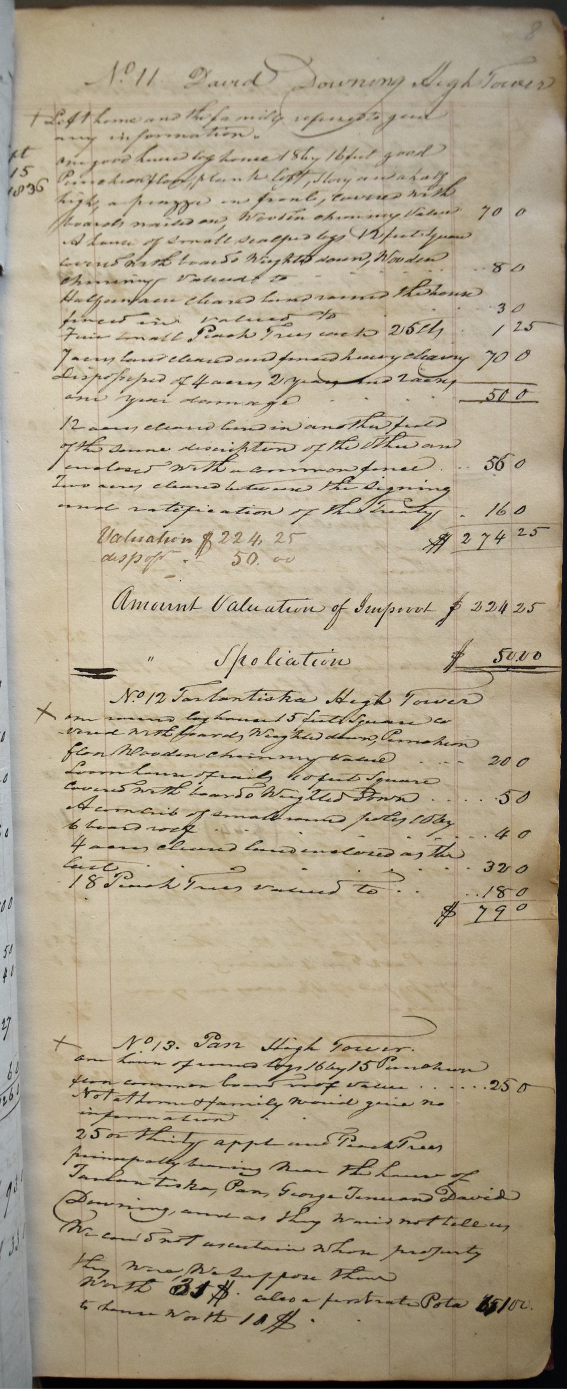 8
No. 11 David Downing High Tower
+ Left home and the family refused to give
any information.
Sept
15
1836
one good hewed log house 18 by 16 feet good
Puncheon floor, plank loft, Story and a half
high, a piazza in front, covered with
boards nailed on, Wooden chimney Value 70 0
A house of small scalped logs 12 feet Square
covered with boards Weighted down, Wooden
chimney Valued to 8 0
Half an acre cleared land round the house
fenced in Valued to 3 0
Five small Peach Trees each 25 cts 1 25
7 acres land cleared and fenced heavy clearing 70 0
Dispossessed of 4 acres 2 years and 2 acres
one year damage 50 0
12 acres cleared land in another field
of the same description of the other and
enclosed with a common fence 56 0
Two acres cleared between the Signing
and ratification of the Treaty 16 0
Valuation $ 224.25 $ 274 25
dispost. " 50.00
Amount Valuation of Improvt $ 224 25
" Spoliation $ 50.00
No. 12 Tarlantiska High Tower
+ one round log house 15 feet Square co
vered with boards, Weighted down, Puncheon
floor Wooden chimney value 20 0
Loom house of rails 10 feet Square
covered with boards Weighted Down 5 0
A corn crib of small round poles 10 by
6 board roof 4 0
4 acres cleared land enclosed as the
last 32 0
18 Peach Trees valued to 18 0
$ 79 0
+ No. 13. Pan High Tower.
one house of round logs 16 by 15 Puncheon
floor common board roof value 25 0
Not at home & family would give no
information
25 or thirty apple and Peach Trees
principally bearing Near the house of
Tarlantiska, Pan, George Tenu and David
Downing, and as they would not tell us
We could not ascertain whose property
they were, We suppose them
Worth $. also a Pota
to house Worth 10 $.